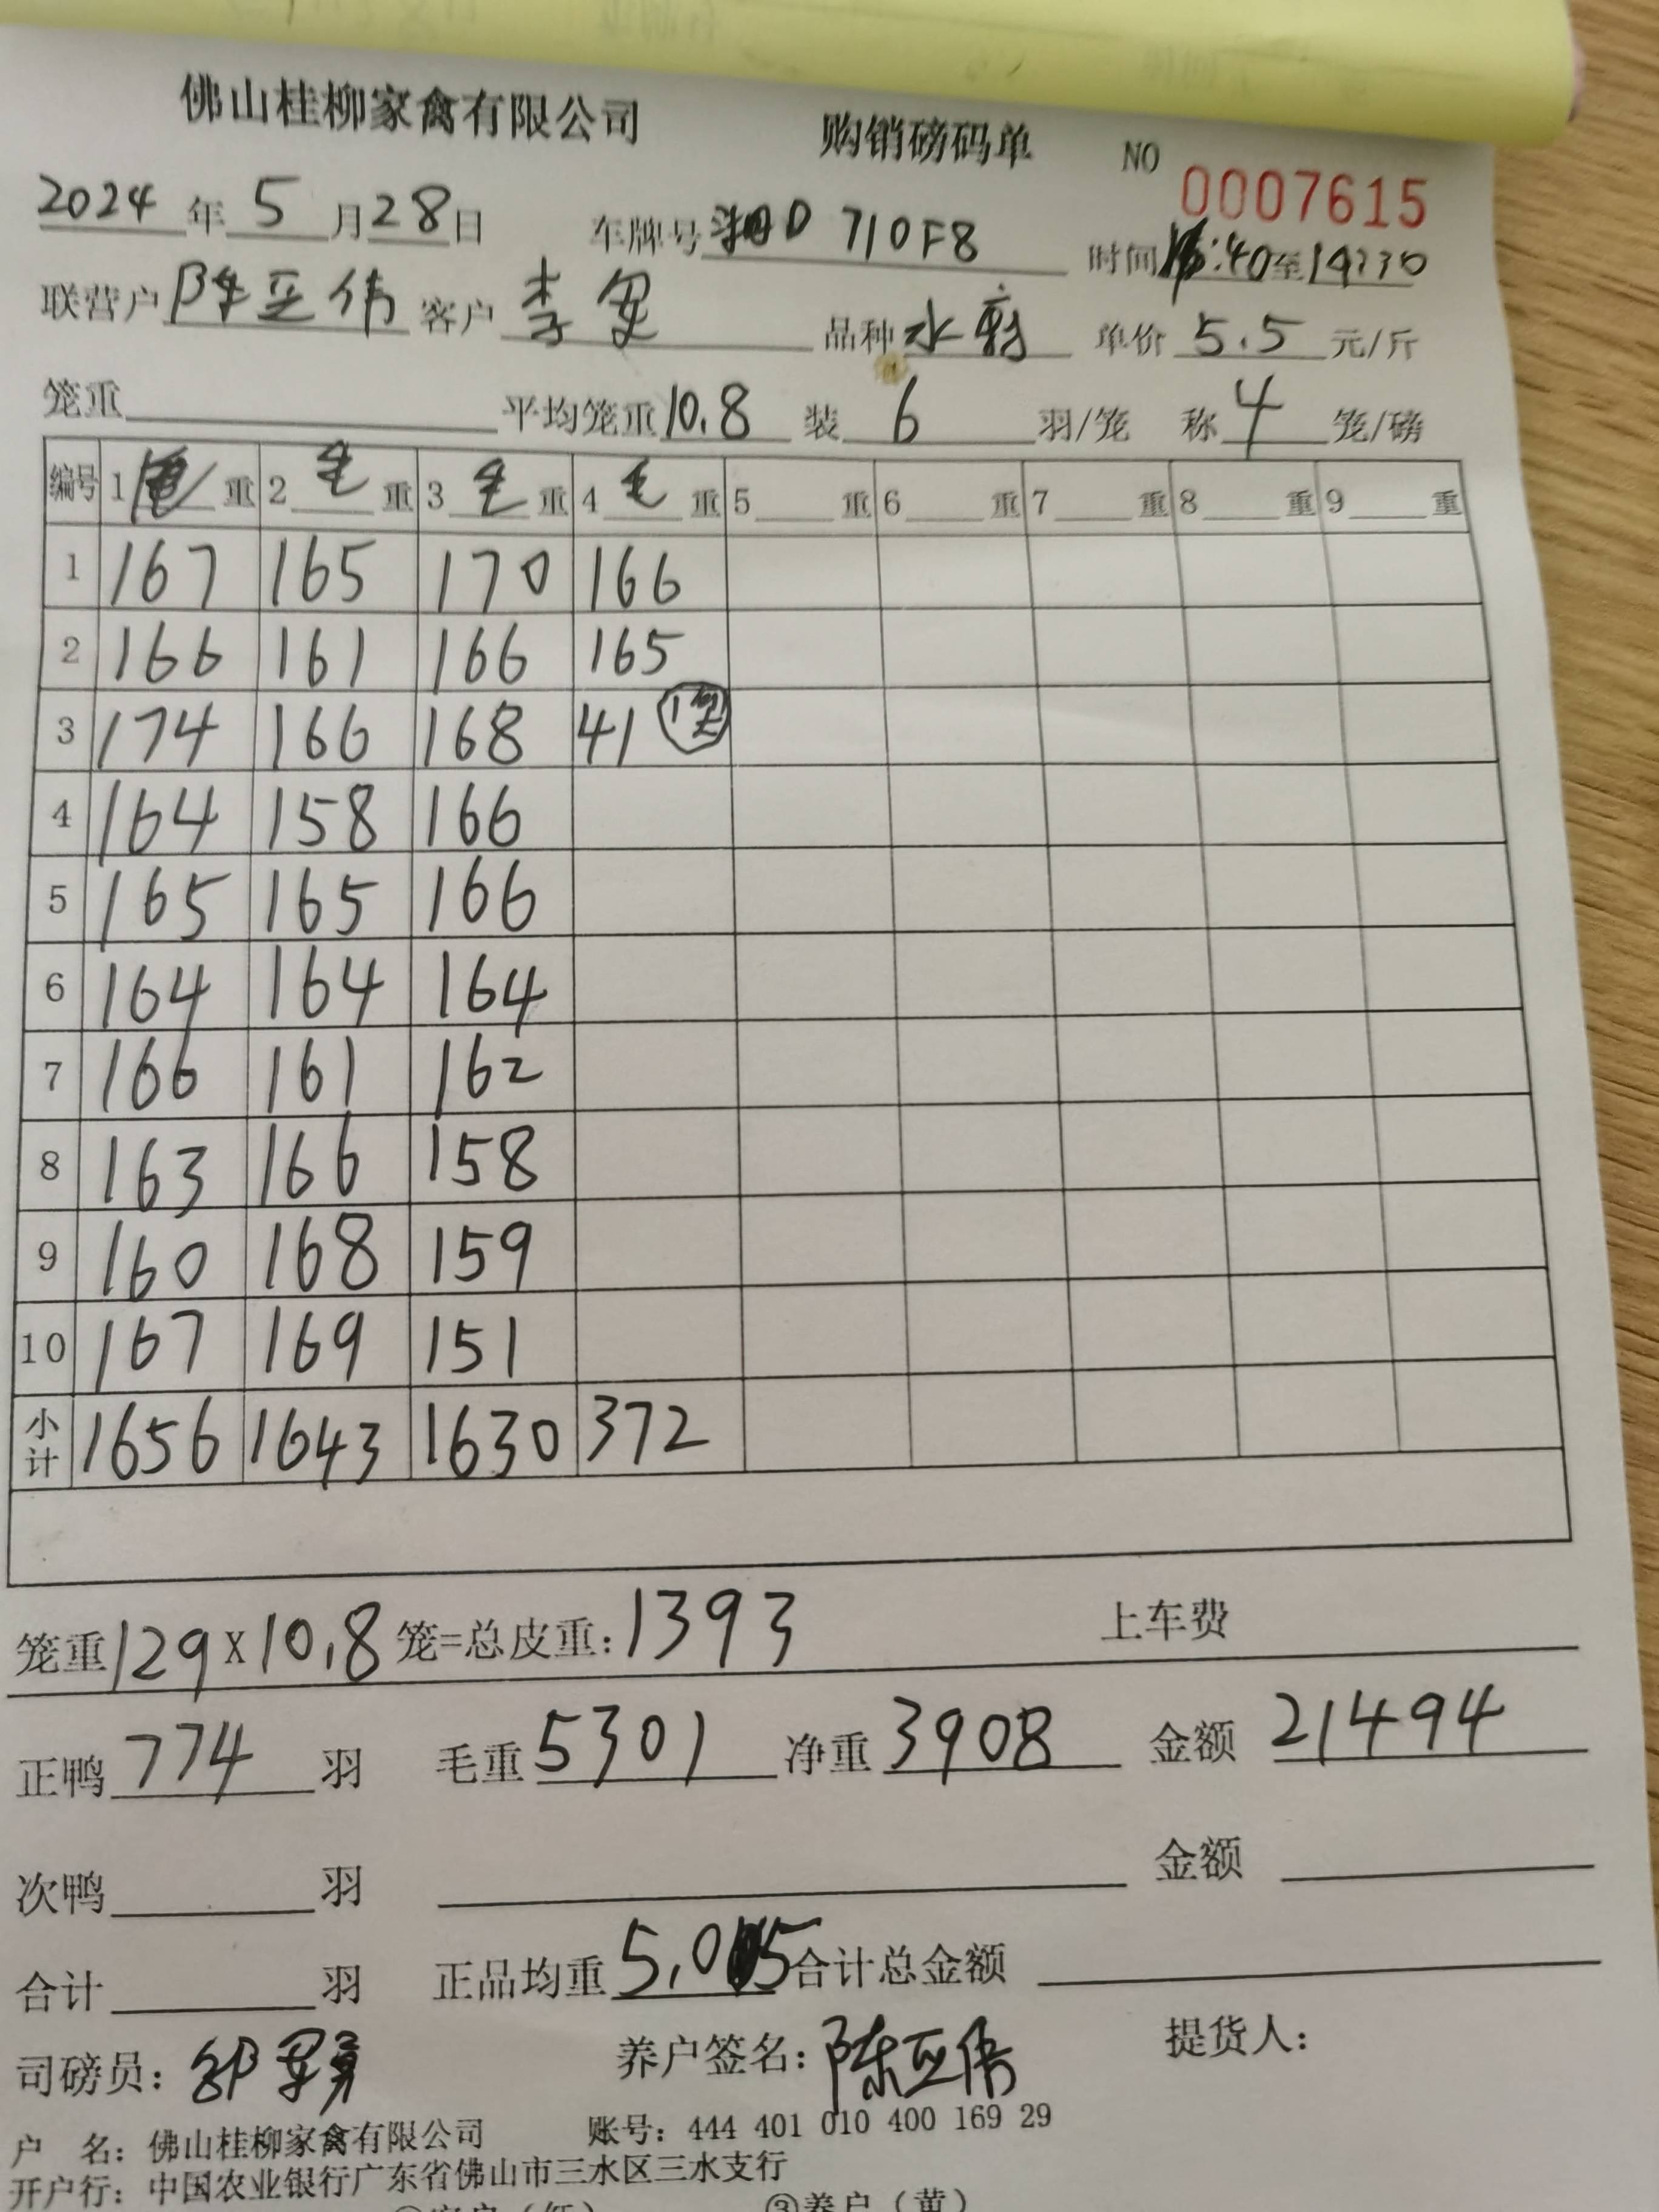 佛山桂柳家禽有限公司 购销磅码单 NO 0007615
2024年5月28日 车牌号湘D 710F8 时间:40至19:30
联营户 陈亚伟 客户 李 品种 水 单价5.5元/斤
笼重 平均笼重10.8 装6羽/笼 称4笼/磅
编号 1重 2毛重 3毛重 4毛重 5重 6重 7重 8重 9重
1 167 165 170 166
2 166 161 166 165
3 174 166 168 41
4 164 158 166
5 165 165 166
6 164 164 164
7 166 161 162
8 163 166 158
9 160 168 159
10 167 169 151
小计 1656 1643 1630 372
笼重129X10.8笼=总皮重:1393 上车费
正鸭774羽 毛重5301 净重3908 金额21494
次鸭羽 金额
合计羽 正品均重5.05 合计总金额
司磅员: 养户签名:陈亚伟 提货人:
户 名:佛山桂柳家禽有限公司 账号:444 401 010 400 169 29
开户行:中国农业银行广东省佛山市三水区三水支行
③养户(黄)